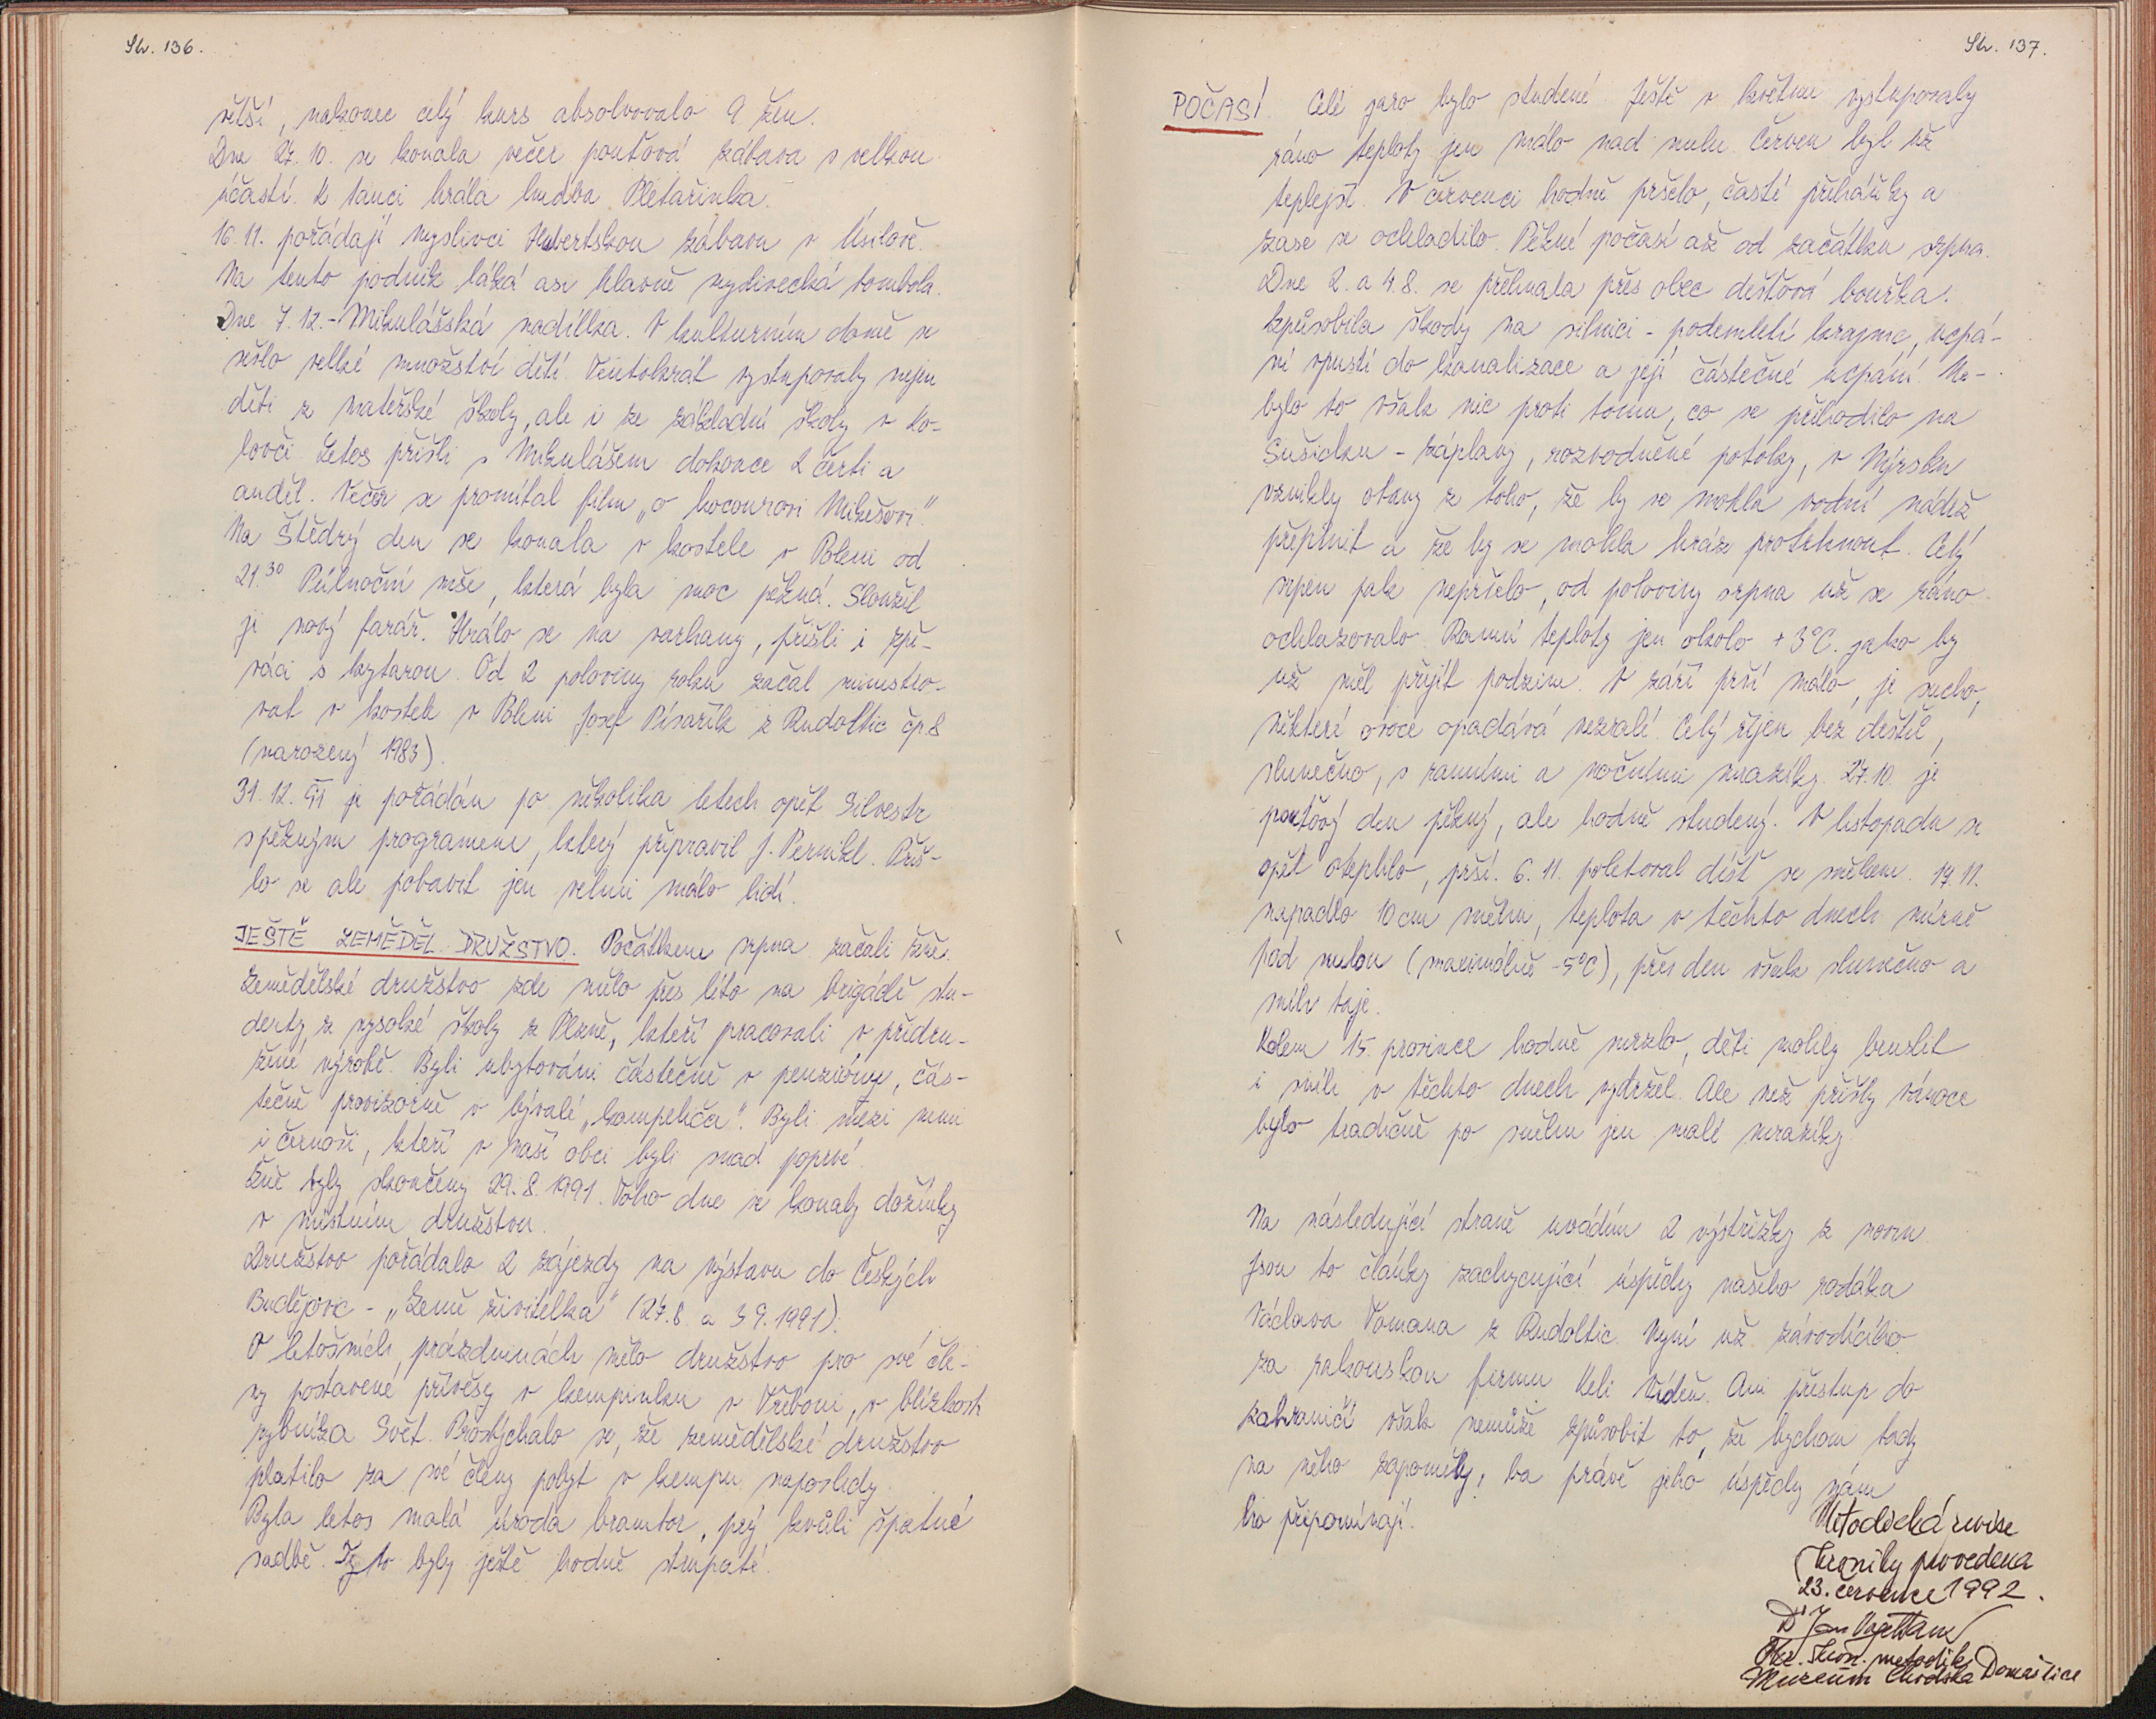 Str. 136.
větší, nakonec celý kurs absolvovalo 9 žen.
Dne 27. 10. se konala večer pouťová zábava s velkou
účastí. K tanci hrála hudba Pletařinka.
16. 11. pořádají myslivci Hubertskou zábavu v Úsilově.
Na tento podnik láká asi hlavně myslivecká tombola.
Dne 7. 12. - Mikulášská nadílka. V kulturním domě se
sešlo velké množství dětí. Tentokrát vystupovaly nejen
děti z mateřské školy, ale i ze základní školy v Ko-
lovči. Letos přišli s Mikulášem dokonce 2 čerti a
anděl. Večer se promítal film „o kocourovi Mikešovi".
Na Štědrý den se konala v kostele v Poleni od
21.30 Půlnoční mše, která byla moc pěkná. Sloužil
ji nový farář. Hrálo se na varhany, přišli i zpě-
váci s kytarou. Od 2 poloviny roku začal ministro-
vat v kostele v Poleni Josef Pisařík z Rudoltic čp. 8
(narozený 1983).
31. 12. 91 je pořádán po několika letech opět Silvestr
s pěkným programem, který připravil J. Pernikl. Přiš-
lo se ale pobavit jen velmi málo lidí.
JEŠTĚ ZEMĚDĚL. DRUŽSTVO. Počátkem srpna začali žně.
Zemědělské družstvo zde mělo přes léto na brigádě stu-
denty z vysoké školy z Plzně, kteří pracovali v přidru-
žené výrobě. Byli ubytováni částečně v penziónu, čás-
tečně provizorně v bývalé „kampeliča". Byli mezi nimi
i černoši, kteří v naší obci byli snad poprvé.
Žně byly skončeny 29. 8. 1991. Toho dne se konaly dožínky
v místním družstvu.
Družstvo pořádalo 2 zájezdy na výstavu do Českých
Budějovic - „Země živitelka" (27. 8. a 3 9. 1991).
O letošních prázdninách mělo družstvo pro své čle-
ny postavené přívěsy v kempinku v Třeboni, v blízkosti
rybníka Svět. Proslýchalo se, že zemědělské družstvo
platilo za své členy pobyt v kempu naposledy.
Byla letos malá úroda brambor, prý kvůli špatné
sadbě. I to byly ještě hodně strupaté.
Str. 137.
POČASÍ. Celé jaro bylo studené. Ještě v květnu vystupovaly
ráno teploty jen málo nad nulu. Červen byl už
teplejší. V červenci hodně pršelo, časté přeháňky a
zase se ochladilo. Pěkné počasí až od začátku srpna.
Dne 2. a 4. 8. se přehnala přes obec dešťová bouřka.
Způsobila škody na silnici - podemletí krajnic, ucpá-
ní vpustí do kanalizace a její částečné ucpání. Ne-
bylo to však nic proti tomu, co se přihodilo na
Sušicku - záplavy, rozvodněné potoky, v Nýrsku
vznikly obavy z toho, že by se mohla vodní nádrž
přeplnit a že by se mohla hráz protrhnout. Celý
srpen pak nepršelo, od poloviny srpna už se ráno
ochlazovalo. Ranní teploty jen okolo +3°C. jako by
už měl přijít podzim. V září prší málo, je sucho,
některé ovoce opadává nezralé. Celý říjen bez deště,
slunečno, s ranními a nočními mrazíky. 27. 10. je
pouťový den pěkný, ale hodně studený. V listopadu se
opět oteplilo, prší. 6. 11. poletoval déšť se sněhem. 17. 11.
napadlo 10 cm sněhu, teplota v těchto dnech mírně
pod nulou (maximálně -5°C), přes den však slunečno a
sníh taje.
Kolem 15. prosince hodně mrzlo, děti mohly bruslit
i sníh v těchto dnech vydržel. Ale než přišly vánoce
bylo tradičně po sněhu jen malé mrazíky.
Na následující straně uvádím 2 výstřižky z novin.
Jsou to články zachycující úspěchy našeho rodáka
Václava Tomana z Rudoltic. Nyní už závodícího
za rakouskou firmu Keli Vídeň. Ani přestup do
zahraničí však nemůže způsobit to, že bychom tady
na něho zapoměly, ba právě jeho úspěchy nám
ho připomínají.
Metodická revise
kroniky provedena
23. července 1992.
Dr Jan
Okr. kron. metodik
Muzeum Chodska Domažlice